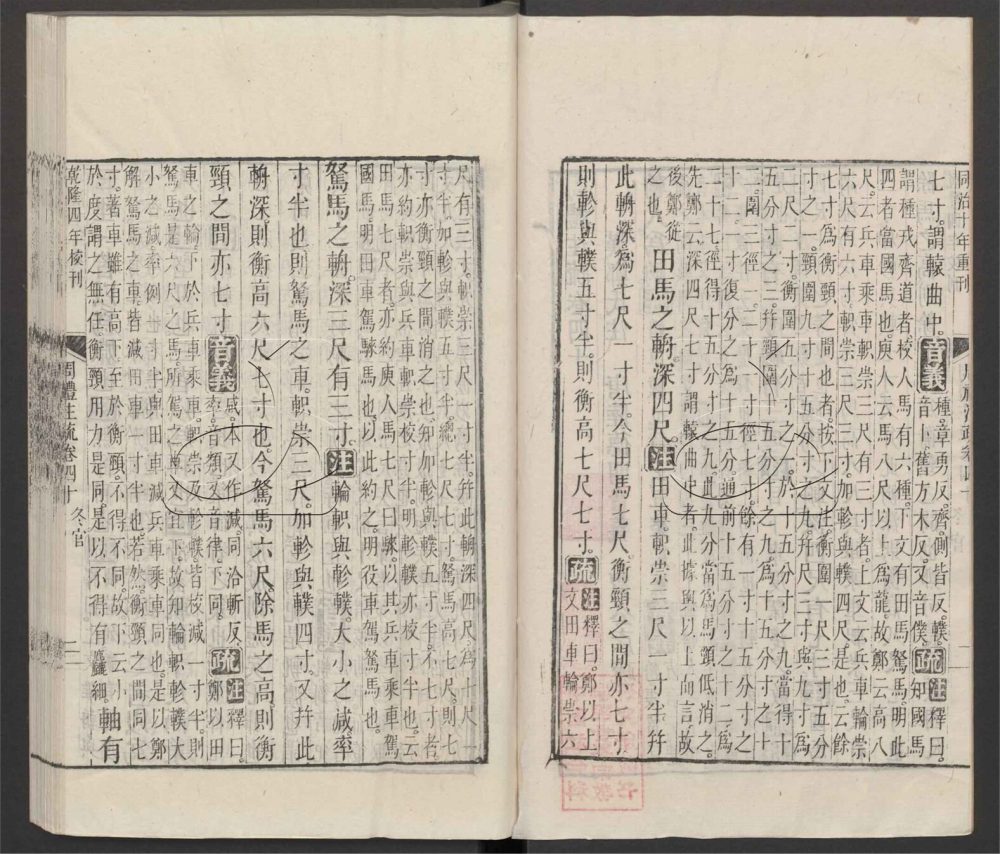 同治十年重刊
七寸謂轅曲中。音義種章勇反。齊側皆反。轐音卜。舊方木反。又音僕。疏注釋曰。知國馬
謂種戎齊道者校人馬有六種下文有田馬駑馬明此
四者當國馬也庾人云馬八尺以上為龍故鄭云高八
尺云兵車乘車軹崇三尺有三寸者上文云兵車輪崇
六尺有六寸軹崇三尺三寸加軫與轐四尺是也云餘
七寸為衡頸之間也者按下文注衡圍一尺三寸五分
寸之一頸圍九寸十五分寸之九幷尺三寸與九寸為
尺二寸
二圍三徑一
二十七徑得十五分寸之九此九分當為馬頸低消之
先鄭云深四尺七寸謂轅曲中者此據輿以上而言故
後鄭從之也
田馬之輈深四尺。注田車軹崇三尺一寸半幷
此輈深為七尺一寸半。今田馬七尺。衡頸之間亦七寸
則軫與轐五寸半。則衡高七尺七寸。疏注釋曰鄭以上文田車輪崇六
尺有三寸。軹崇三尺一寸半。幷此輈深四尺為七尺一
寸半。加軫與轐五寸半。總七尺七寸。駑馬高七尺。則七
寸亦衡頸之間消之也知加軫與轐五寸半不七寸者
亦約軹崇與兵車軹崇校寸半明軫轐亦校寸半也云
田馬七尺者亦約庾人馬七尺曰騋以其兵車乘車駕
國馬明田車駕騋馬也以此約之明役車駕駑馬也
駑馬之輈。深三尺有三寸。注輪軹與軫轐。大小之減率
寸半也。則駑馬之車。軹崇三尺。加軫與轐四寸。又幷此
輈深則衡高六尺七寸也。今駑馬六尺除馬之高。則衡
頸之間亦七寸音義戚本又作減。同洽斬反率音類。又音律。下同。疏注釋曰。鄭
車之輪下於兵車乘車。軹崇及軫轐皆校減一寸半則
駑馬是六尺之馬所駕之車又宜下故知輪軹軫轐大
小之減率例一寸半與田車減兵車乘車同也是以鄭
解駑馬之車皆減田車一寸半也若然衡頸之間同七
寸著車雖有高下至於衡頸不得不同故下云小
於度謂之無任衡頸用力是同是以不得有麤細。軸有
乾隆四年校刊
周禮注疏卷四十 冬官
二